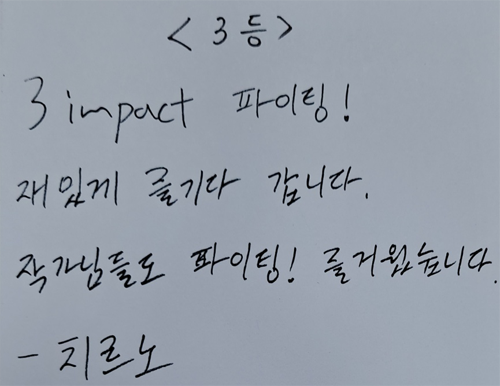 <3등>
3 impact 파이팅!
재밌게 즐기다 갑니다.
작가님들도 파이팅! 즐거웠습니다.
- 치르노